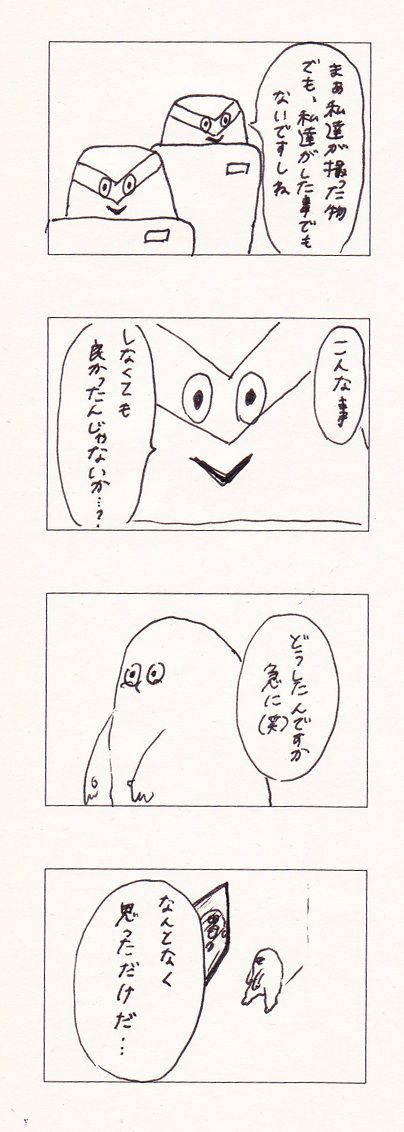 まぁ私達が撮った物
でも、私達がした事でも
ないですしね
こんな事
しなくても
良かったんじゃないか…?
どうしたんですか
急に(笑)
なんとなく
思っただけだ…